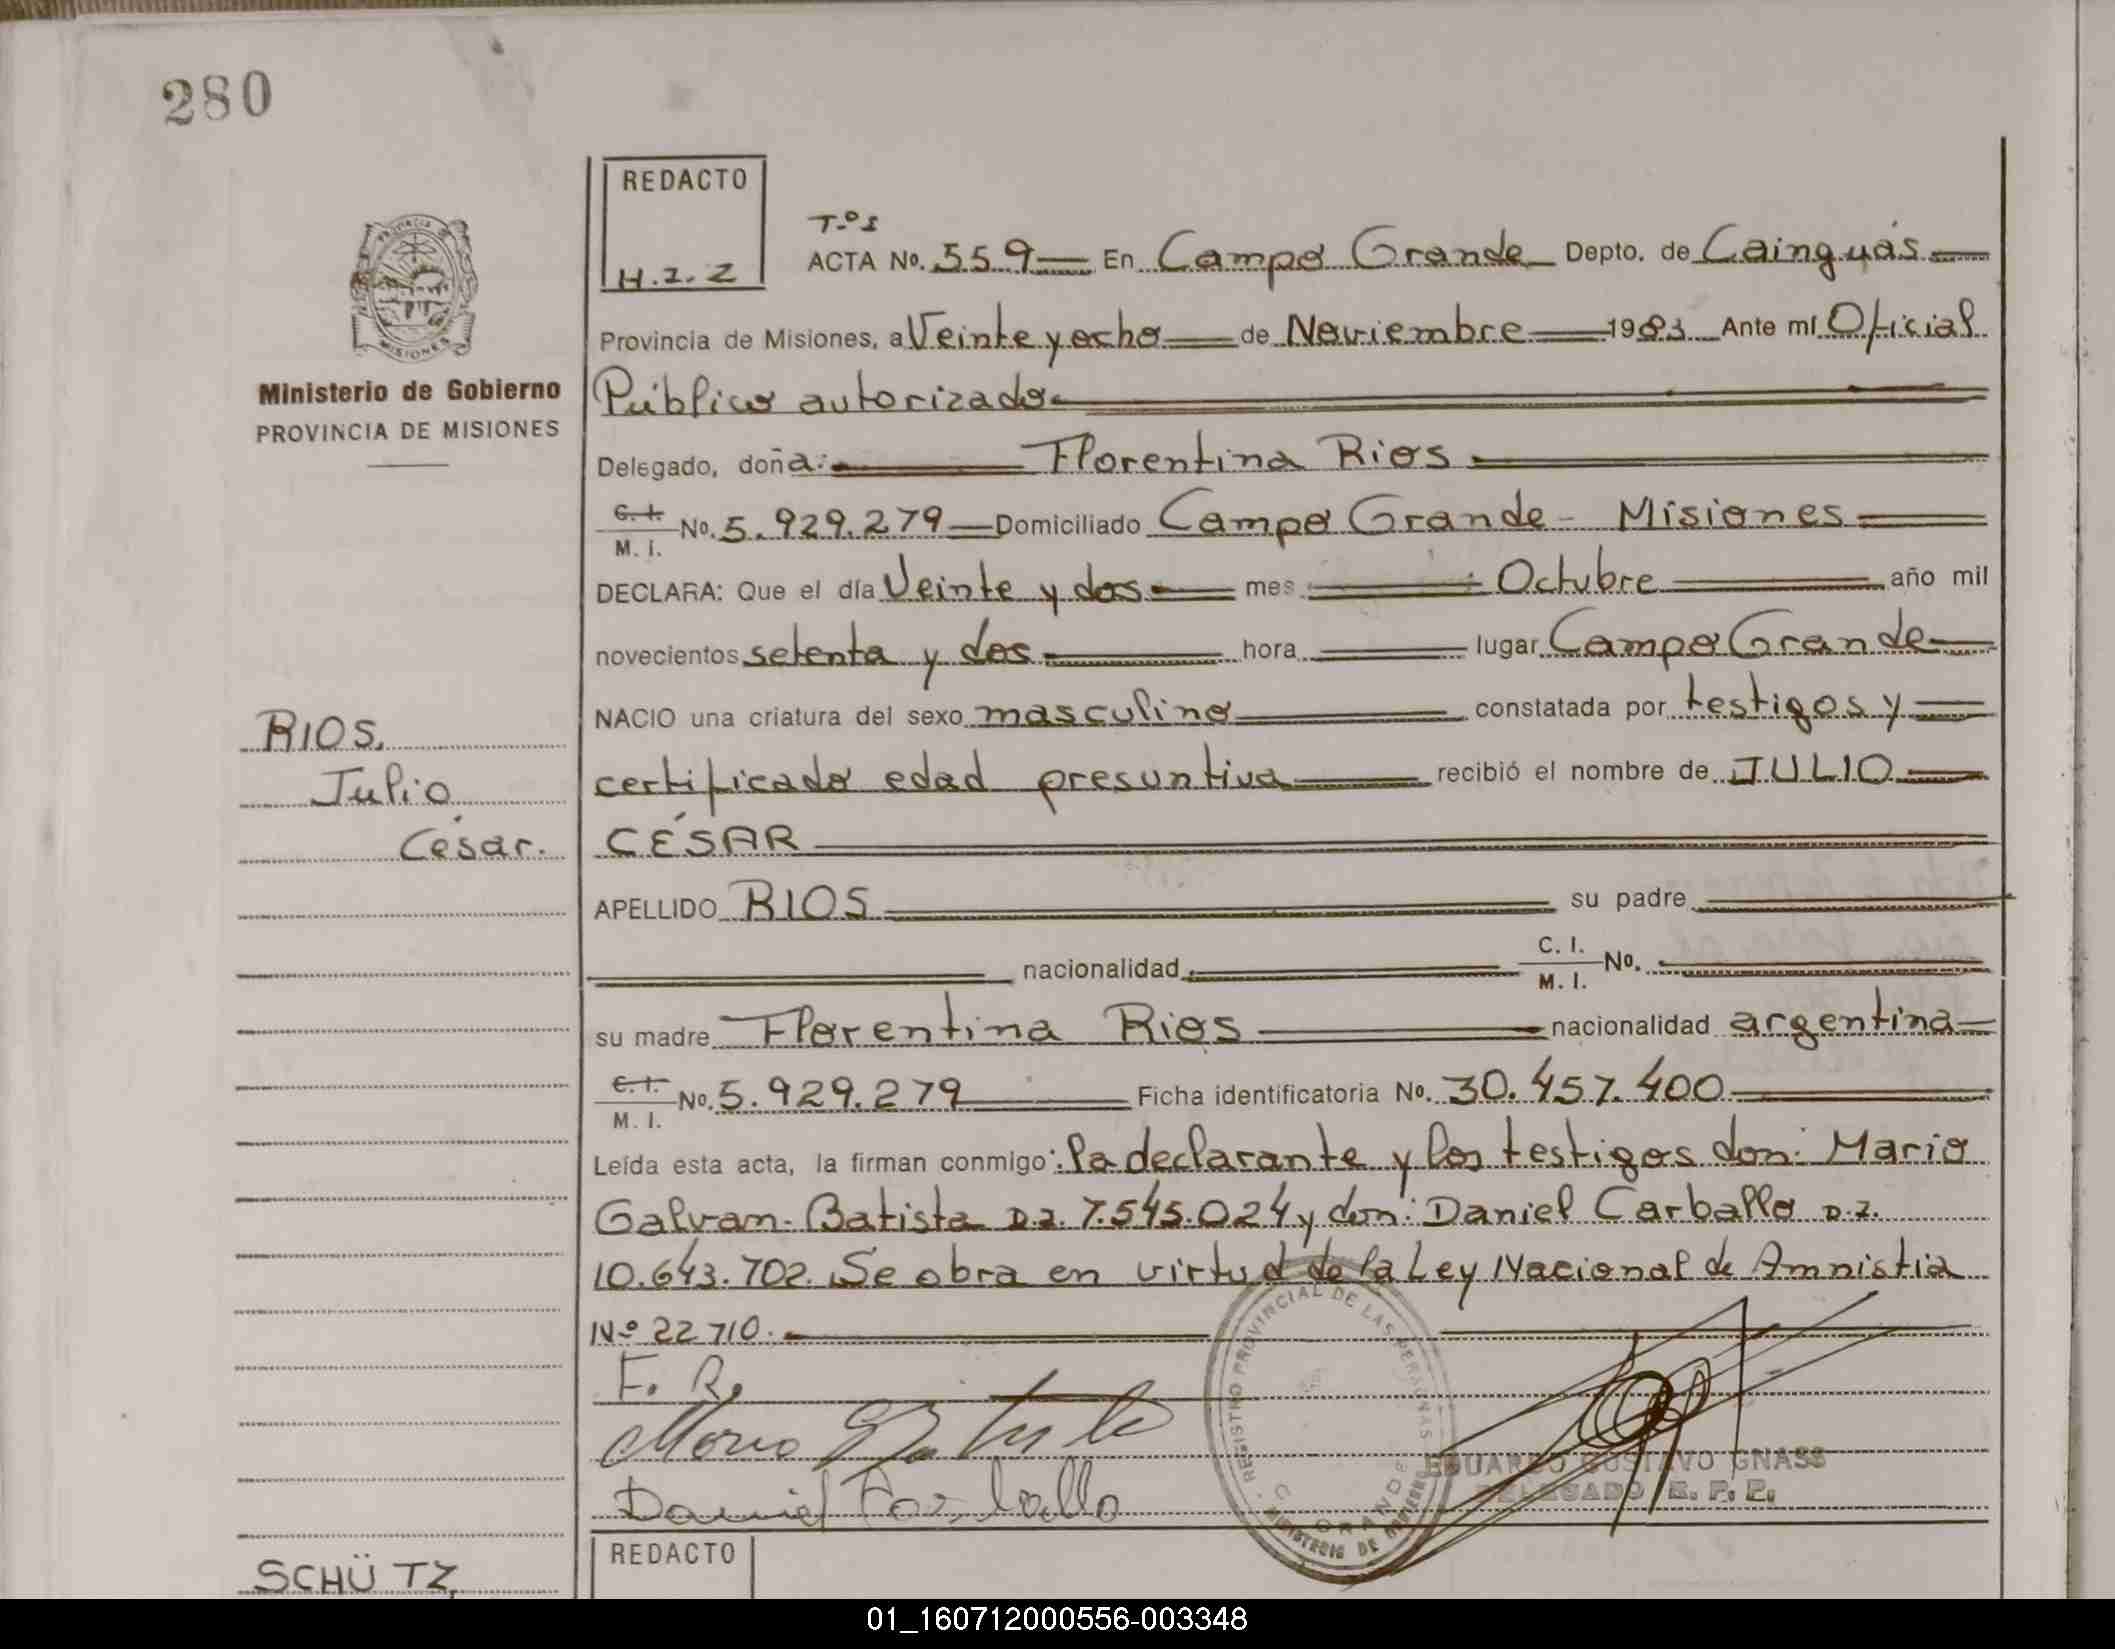 280
REDACTO
H.I.Z
PROVINCIA D
MISIONES
Ministerio de Gobierno
PROVINCIA DE MISIONES
T.º I
ACTA No. 559 — En Campo Grande Depto. de Cainguás
Provincia de Misiones, a Veinte y ocho de Noviembre 1983 Ante mí Oficial
Público autorizado
Delegado, doña: Florentina Rios
C. I. / M. I. No. 5.929.279 Domiciliado Campo Grande - Misiones
DECLARA: Que el día Veinte y dos mes Octubre año mil
novecientos setenta y dos hora lugar Campo Grande
NACIO una criatura del sexo masculino constatada por testigos y
certificado edad presuntiva recibió el nombre de JULIO
CÉSAR
APELLIDO RIOS su padre
nacionalidad C. I. / M. I. No.
su madre Florentina Rios nacionalidad argentina
C. I. / M. I. No. 5.929.279 Ficha identificatoria No. 30.457.400
Leída esta acta, la firman conmigo: la declarante y los testigos don: Mario
Galvan Batista D.I. 7.545.024 y don: Daniel Carballo D.I.
10.643.702. Se obra en virtud de la Ley Nacional de Amnistia
Nº 22710.
F. R.
Mario G Batista
Daniel Carballo
RIOS,
Julio
César.
REGISTRO PROVINCIAL DE LAS PERSONAS
C. GRANDE
MINISTERIO DE GOBIERNO
EDUARDO GUSTAVO GNASS
DELEGADO R. P. P.
REDACTO
SCHÜTZ,
01_160712000556-003348